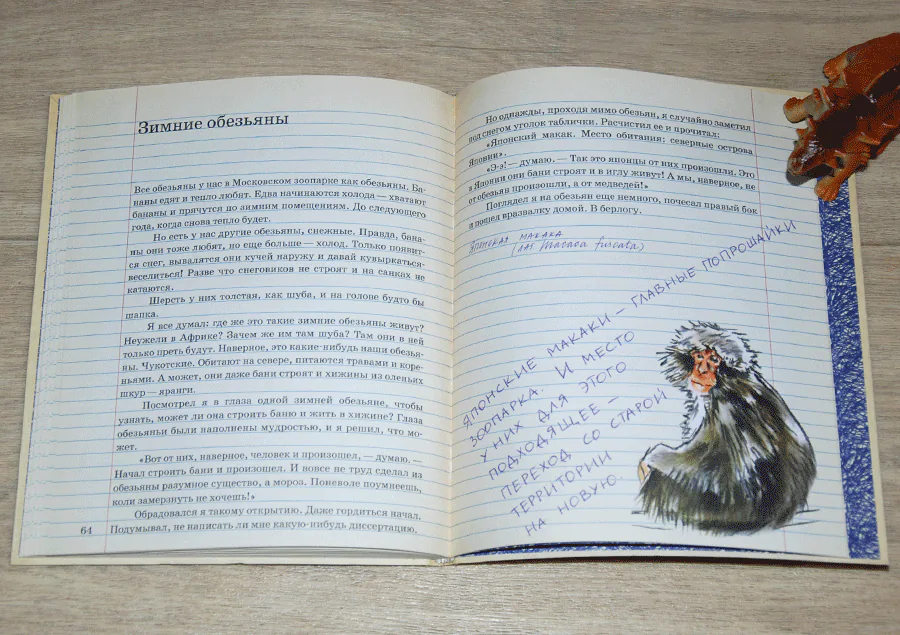 Зимние обезьяны
Все обезьяны у нас в Московском зоопарке как обезьяны. Ба-
наны едят и тепло любят. Едва начинаются холода — хватают
бананы и прячутся по зимним помещениям. До следующего
года, когда снова тепло будет.
Но есть у нас другие обезьяны, снежные. Правда, бана-
ны они тоже любят, но еще больше — холод. Только появит-
ся снег, вывалятся они кучей наружу и давай кувыркаться-
веселиться! Разве что снеговиков не строят и на санках не
катаются.
Шерсть у них толстая, как шуба, и на голове будто бы
шапка.
Я все думал: где же это такие зимние обезьяны живут?
Неужели в Африке? Зачем же им там шуба? Там они в ней
только преть будут. Наверное, это какие-нибудь наши обезья-
ны. Чукотские. Обитают на севере, питаются травами и коре-
ньями. А может, они даже бани строят и хижины из оленьих
шкур — яранги.
Посмотрел я в глаза одной зимней обезьяне, чтобы
узнать, может ли она строить баню и жить в хижине? Глаза
обезьяньи были наполнены мудростью, и я решил, что мо-
жет.
«Вот от них, наверное, человек и произошел, — думаю. —
Начал строить бани и произошел. И вовсе не труд сделал из
обезьяны разумное существо, а мороз. Поневоле поумнеешь,
коли замерзнуть не хочешь!»
Обрадовался я такому открытию. Даже гордиться начал.
Подумывал, не написать ли мне какую-нибудь диссертацию.
64
Но однажды, проходя мимо обезьян, я случайно заметил
под снегом уголок таблички. Расчистил ее и прочитал:
«Японский макак. Место обитания: северные острова
Японии».
«Э-э! — думаю. — Так это японцы от них произошли. Это
в Японии они бани строят и в иглу живут! А мы, наверное, не
от обезьян произошли, а от медведей!»
Поглядел я на обезьян еще немного, почесал правый бок
и пошел вразвалку домой. В берлогу.
ЯПОНСКАЯ МАКАКА
(лат. Macaca fuscata)
ЯПОНСКИЕ МАКАКИ — ГЛАВНЫЕ ПОПРОШАЙКИ
ЗООПАРКА. И МЕСТО
У НИХ ДЛЯ ЭТОГО
ПОДХОДЯЩЕЕ —
ПЕРЕХОД СО СТАРОЙ
ТЕРРИТОРИИ
НА НОВУЮ.